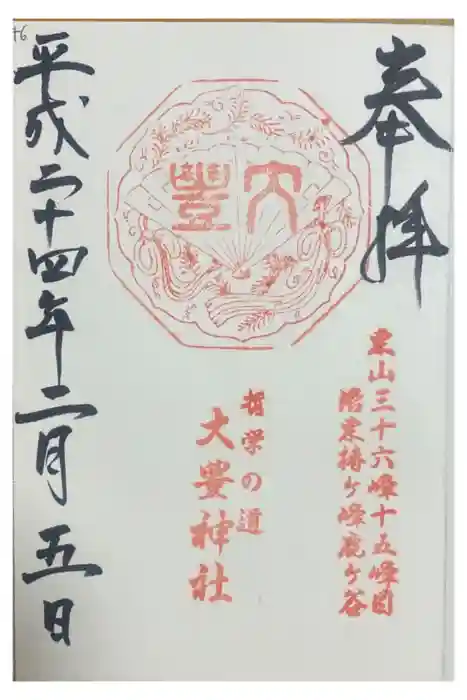 奉拝
東山三十六峰十五峰目
洛東椿ヶ峰鹿ヶ谷
大豐
哲学の道
大豊神社
平成二十四年二月五日